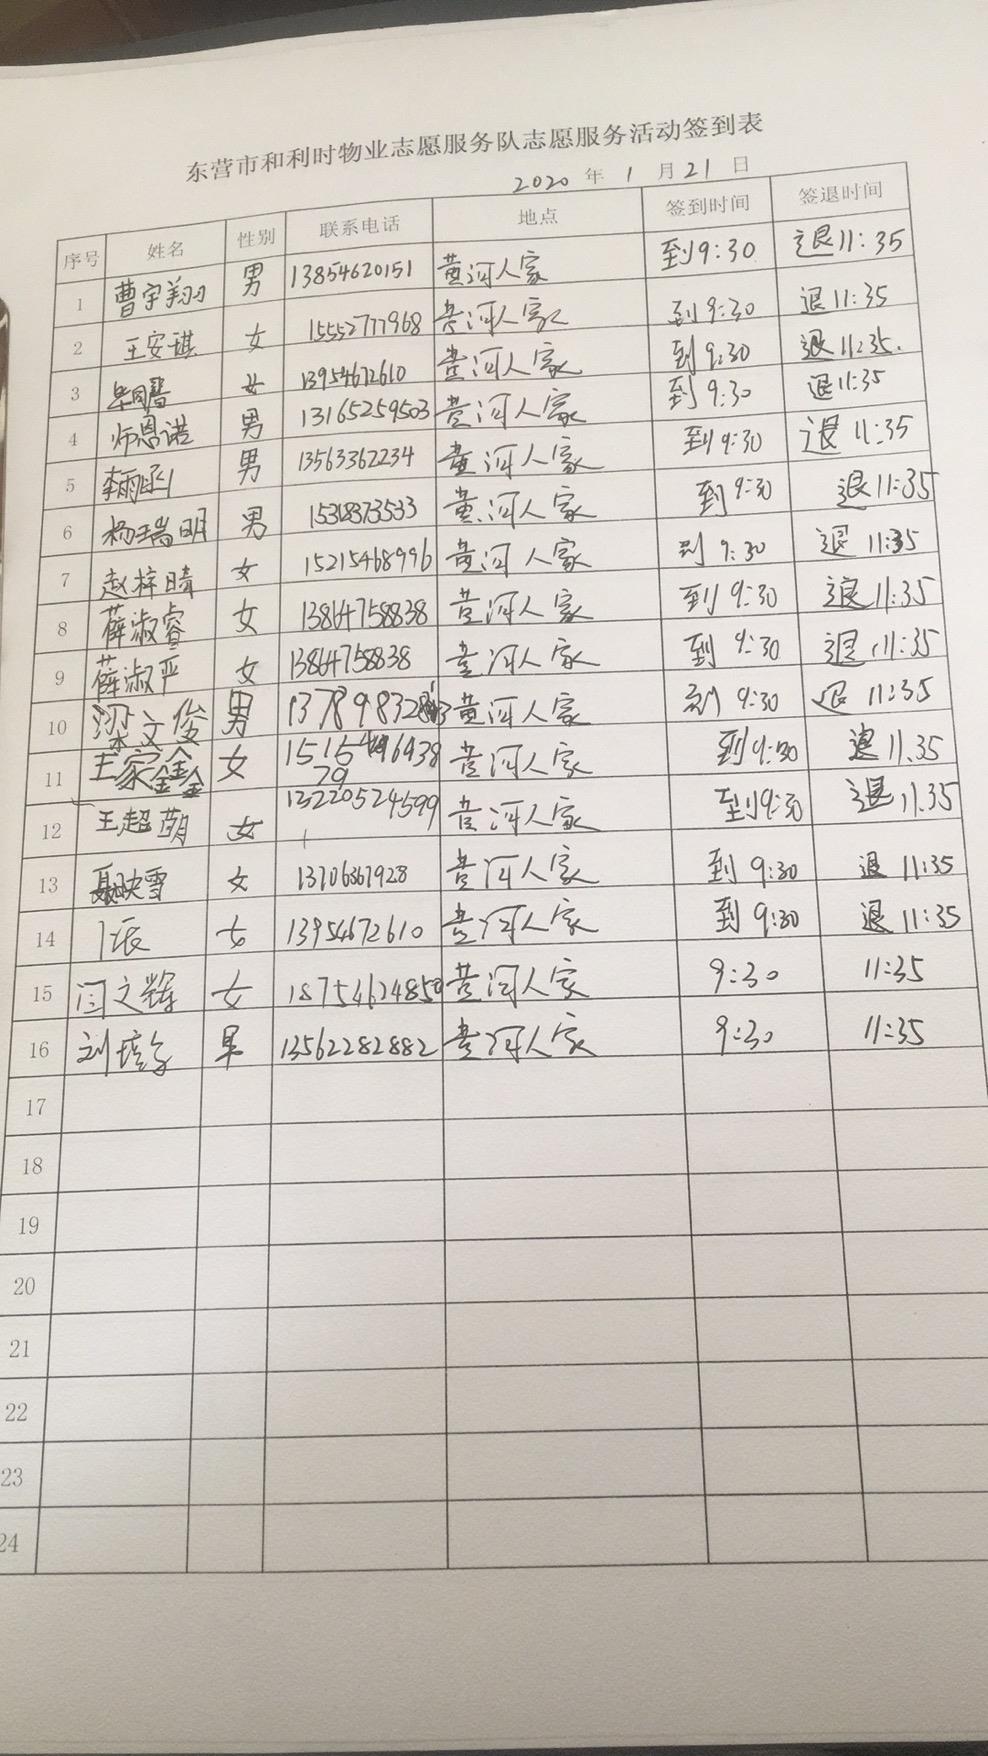 东营市和利时物业志愿服务队志愿服务活动签到表
2020 年 1 月 21 日
序号 姓名 性别 联系电话 地点 签到时间 签退时间
1 曹宇翔 男 13854620151 黄河人家 到9:30 退11:35
2 王安琪 女 15552777968 黄河人家 到9:30 退11:35
3 女 13954672610 黄河人家 到9:30 退11:35.
4 师恩诺 男 13165259503 黄河人家 到9:30 退11:35
5 李雨函 男 13563362234 黄河人家 到9:30 退11:35
6 杨瑞明 男 15318373533 黄河人家 到9:30 退11:35
7 赵梓晴 女 15215468996 黄河人家 到9:30 退11:35
8 薛淑睿 女 13864758838 黄河人家 到9:30 退11:35
9 薛淑严 女 13864758838 黄河人家 到9:30 退11:35
10 梁文俊 男 黄河人家 到9:30 退11:35
11 王家鑫 女 黄河人家 到9:30 退11.35
12 王超萌 女 13220524599 黄河人家 到9:30 退11.35
13 聂映雪 女 13706367928 黄河人家 到9:30 退11:35
14 女 13954672610 黄河人家 到9:30 退11:35
15 闫文辉 女 18754624850 黄河人家 9:30 11:35
16 男 13562282882 黄河人家 9:30 11:35
17
18
19
20
21
22
23
24